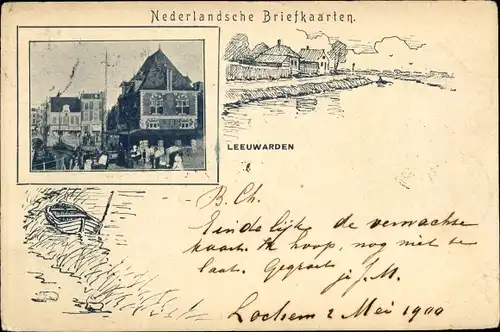 Nederlandsche Briefkaarten.
LEEUWARDEN
B. Ch.
Eindelijk de verwachte
kaart. Ik hoop, nog niet te
laat. Gegroet
je J. M.
Lochem 2 Mei 1900